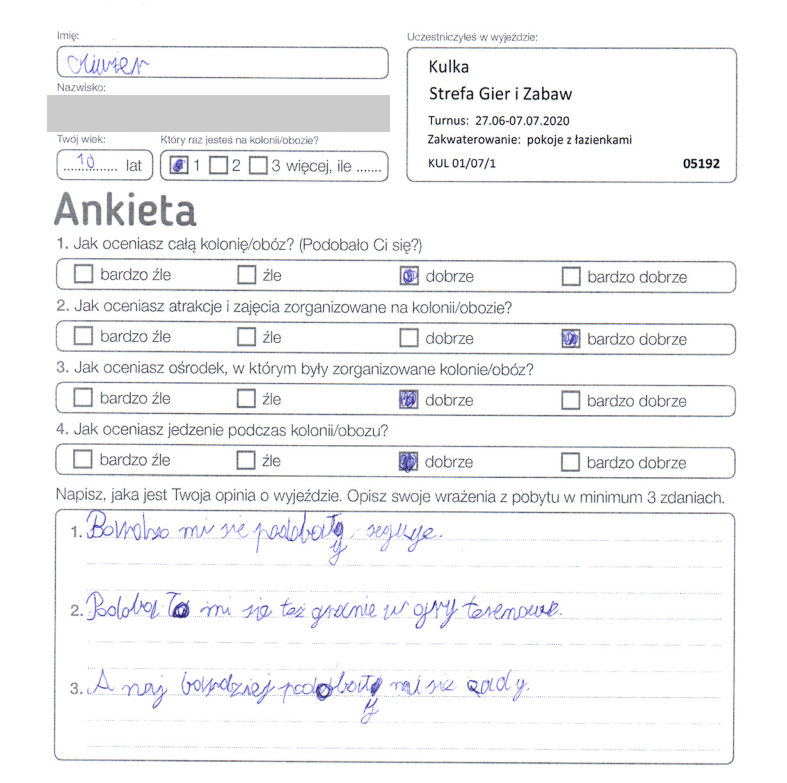 Imię:
Oliwier
Uczestniczyłeś w wyjeździe:
Kulka
Strefa Gier i Zabaw
Turnus: 27.06-07.07.2020
Zakwaterowanie: pokoje z łazienkami
KUL 01/07/1 05192
Nazwisko:
Twój wiek:
10 lat
Który raz jesteś na kolonii/obozie?
1 2 3 więcej, ile .......
Ankieta
1. Jak oceniasz całą kolonię/obóz? (Podobało Ci się?)
bardzo źle źle dobrze bardzo dobrze
2. Jak oceniasz atrakcje i zajęcia zorganizowane na kolonii/obozie?
bardzo źle źle dobrze bardzo dobrze
3. Jak oceniasz ośrodek, w którym były zorganizowane kolonie/obóz?
bardzo źle źle dobrze bardzo dobrze
4. Jak oceniasz jedzenie podczas kolonii/obozu?
bardzo źle źle dobrze bardzo dobrze
Napisz, jaka jest Twoja opinia o wyjeździe. Opisz swoje wrażenia z pobytu w minimum 3 zdaniach.
1. Bardzo mi się podobały seguje.
2. Podobało mi się też granie w gry terenowe.
3. A naj bardziej podobały mi się rady.